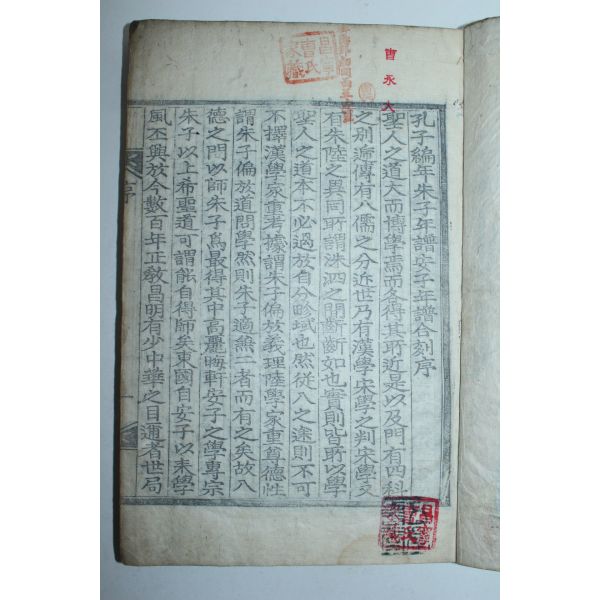 孔子編年朱子年譜安子年譜合刻序
聖人之道大而博學焉而各得其所近是以及門有四科
之別遍傳有八儒之分近世乃有漢學宋學之判宋學又
有朱陸之異同所謂洙泗之間斷斷如也實則皆所以學
聖人之道本不必過於自分畛域也然從入之途則不可
不擇漢學家重考據謂朱子偏於義理陸學家重尊德性
謂朱子偏於道問學然則朱子適無二者而有之矣故入
德之門以師朱子為最得其中高麗晦軒安子之學專宗
朱子以上希聖道可謂能自得師矣東國自安子以來學
風丕興於今數百年正教昌明有少中華之目邇者世局
序
一
曺永大